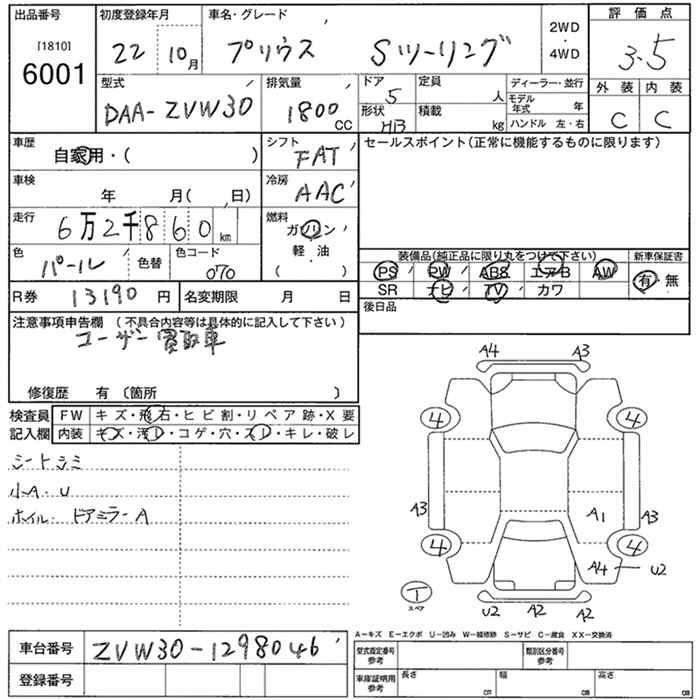 出品番号
[1810]
6001
初度登録年月
22 10月
車名・グレード
プリウス Sツーリング
2WD
・
4WD
評価点
3.5
外装 内装
C C
型式
DAA-ZVW30
排気量
1800
CC
ドア
5
形状
HB
定員
人
積載
kg
ディーラー・並行
モデル年式 年
ハンドル 左・右
車歴
自家用・( )
シフト
FAT
セールスポイント(正常に機能するものに限ります)
車検
年 月( 、日)
冷房
AAC
走行
6万2千860km
燃料
ガソリン・
軽・油
( )
色
パール
色替
色コード
070
装備品(純正品に限り丸をつけて下さい)
新車保証書
PS PW ABS エアB AW
SR ナビ TV カワ
有・無
R券 13190円
名変期限 月 日
後日品
注意事項申告欄 (不具合内容等は具体的に記入して下さい)
ユーザー買取車
修復歴 有 〔箇所 〕
検査員
記入欄
FW キズ・飛石・ヒビ割・リペア跡・X要
内装 キズ・汚レ・コゲ・穴・スレ・キレ・破レ
シートシミ
小A・U
ホイル・ドアミラーA
A4 A3
4 4
A3 A1 A3
4 4
A4 U2
T
スペア
U2 A2 A2
A-キズ E-エクボ U-凹み W-補修跡 S-サビ C-腐食 XX-交換済
車台番号 ZVW30-1298046
登録番号
型式指定番号
参考
類別区分番号
参考
車庫証明用
参考
長さ cm
幅 cm
高さ cm